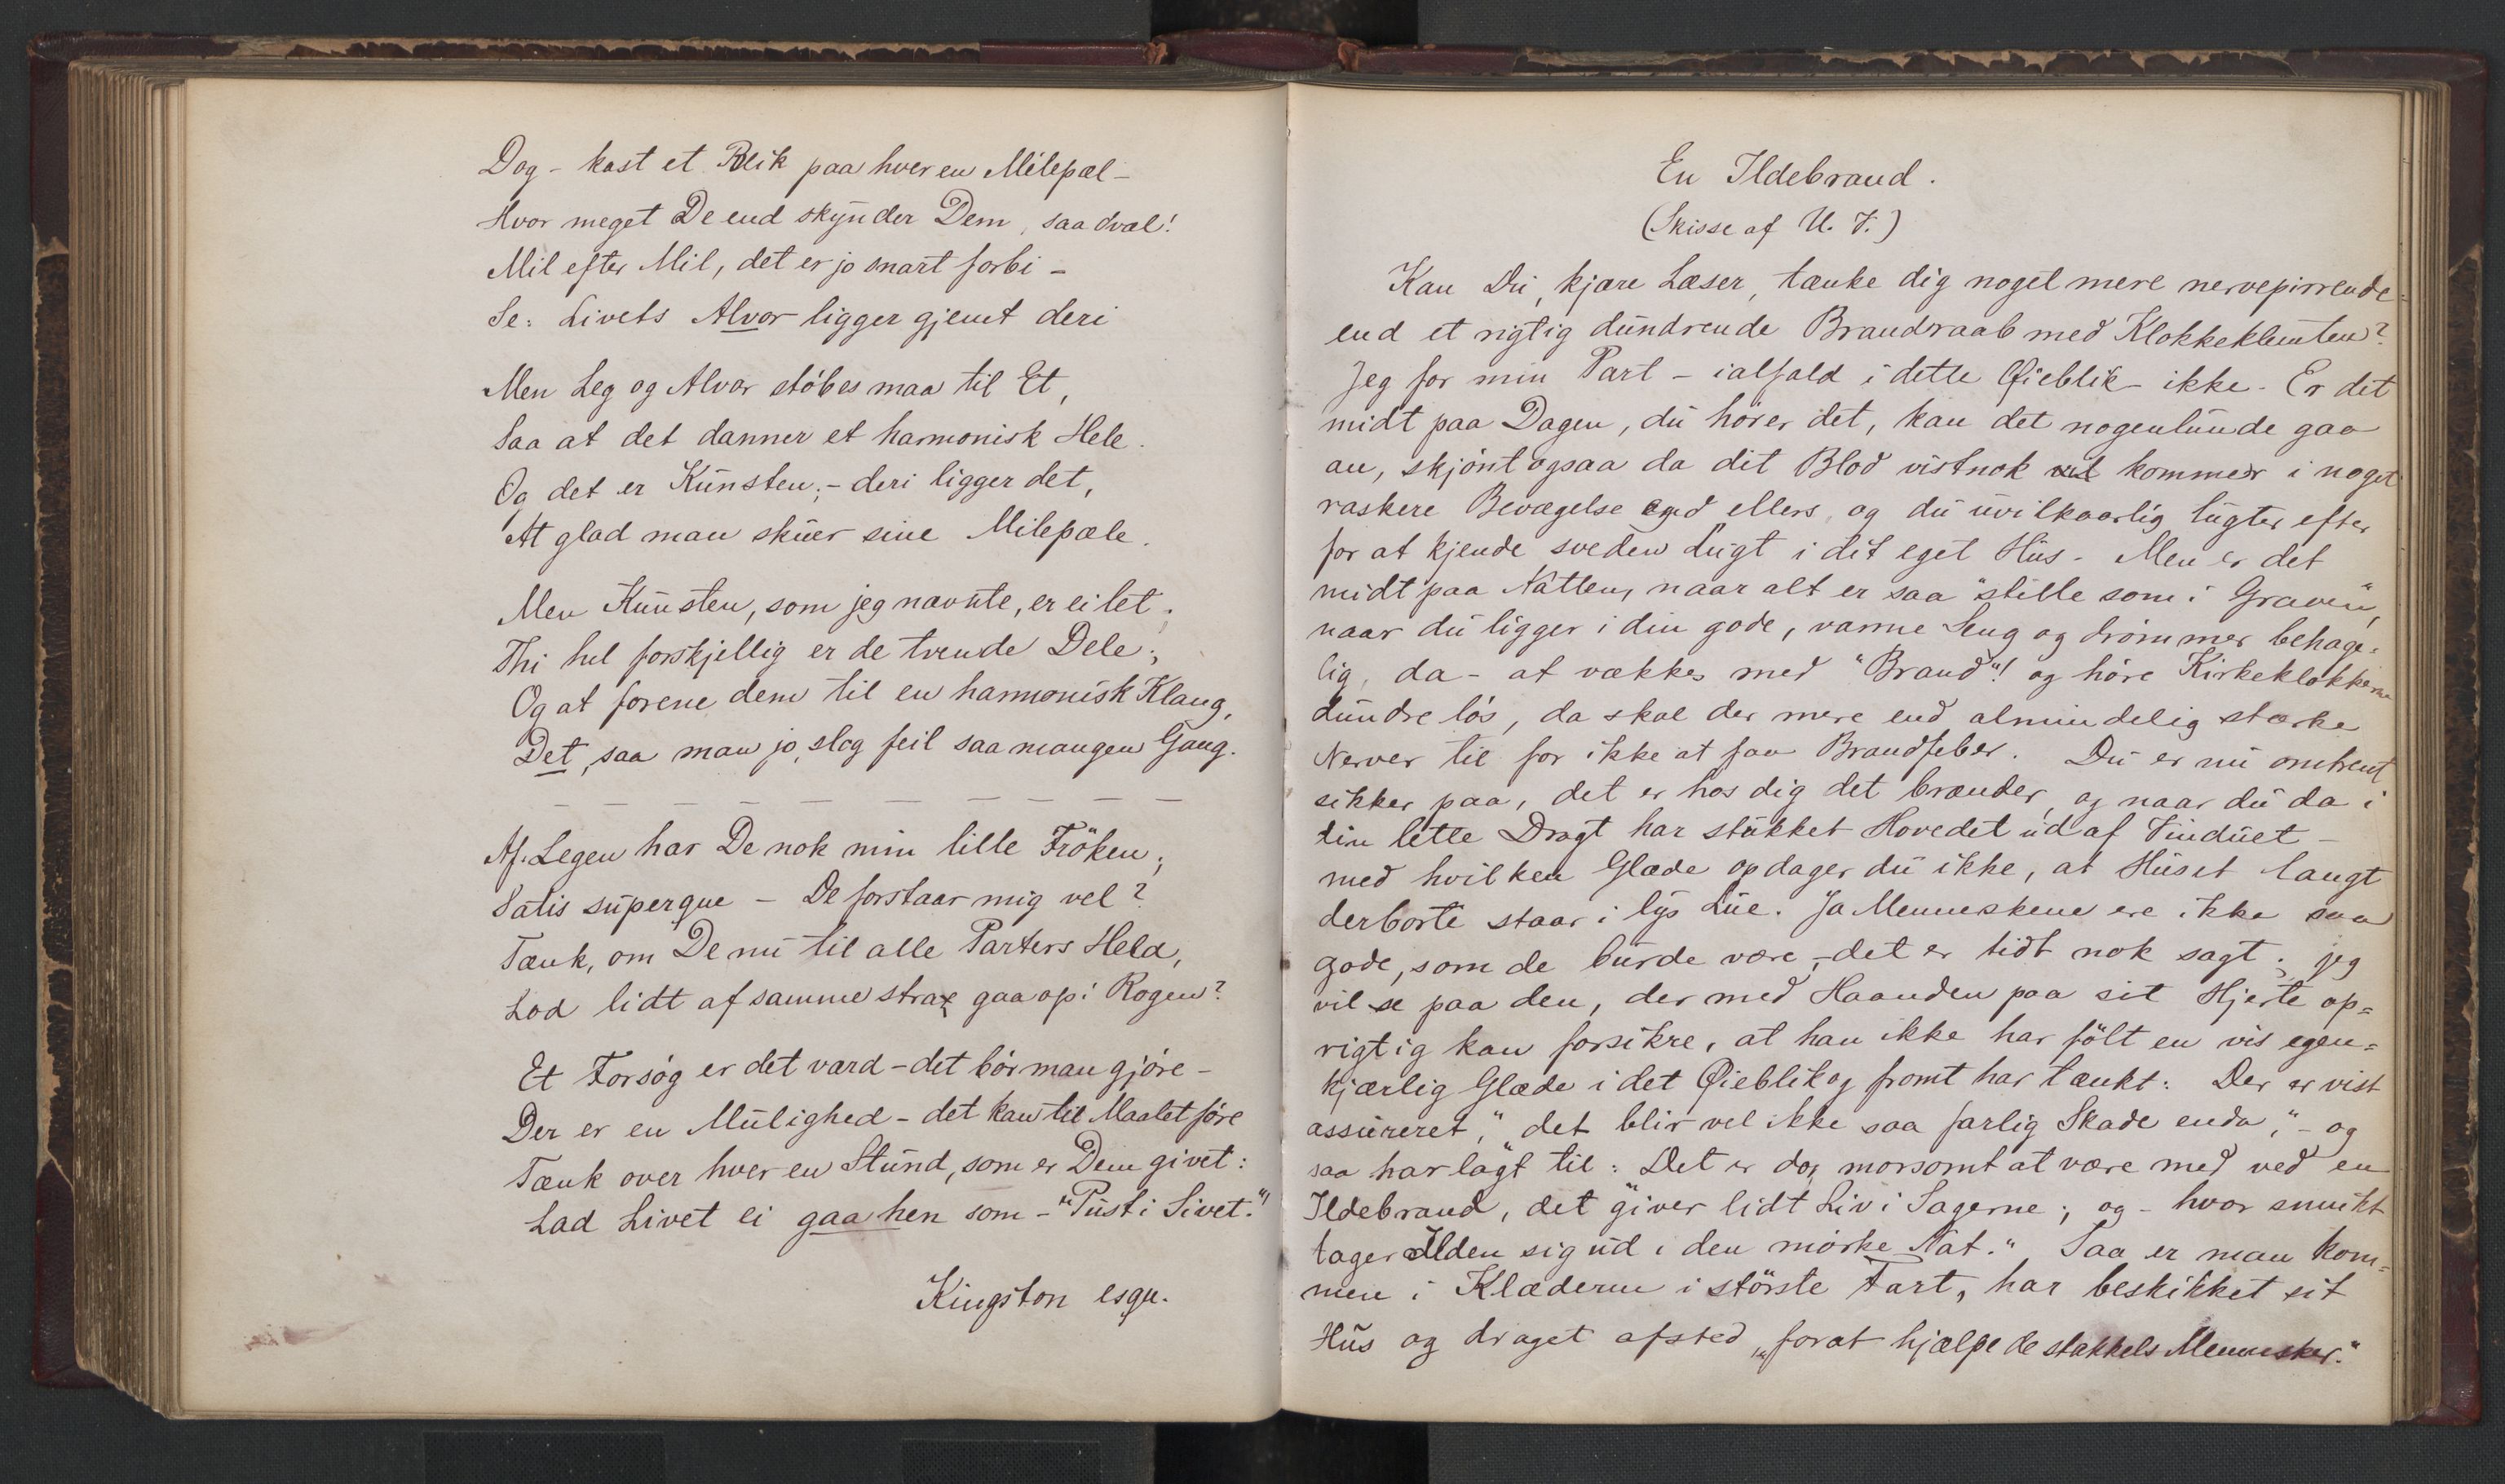 Dog – kast et Blik paa hver en Milepæl –
Hvor meget De end skynder Dem, saa dvæl!
Mil efter Mil, det er jo snart forbi –
Se: Livets Alvor ligger gjemt deri
Men Leg og Alvor støbes maa til Et,
Saa at det danner et harmonisk Hele.
Og det er Kunsten; – deri ligger det,
At glad man skuer sine Milepæle.
Men Kunsten, som jeg nævnte, er ei let;
Thi hel forskjellig er de tvende Dele;
Og at forene dem til en harmonisk Klang,
Det, saa man jo, slog feil saa mangen Gang.
— — — — — — — — — —
Af Legen har De nok min lille Frøken;
Satis superque – De forstaar mig vel?
Tænk, om De nu til alle Parters Held,
Lod lidt af samme strax gaa op i Røgen?
Et Forsøg er det værd – det bør man gjøre –
Der er en Mulighed – det kan til Maalet føre
Tænk over hver en Stund, som er Dem givet:
Lad Livet ei gaa hen som – "Pust i Sivet."!
Kingston esqu.
En Ildebrand.
(Skisse af U. F.)
Kan Du, kjære Læser, tænke dig noget mere nervepirrende
end et rigtig dundrende Brandraab med Klokkeklemten?
Jeg for min Part – ialfald i dette Øieblik – ikke. Er det
midt paa Dagen, du hører det, kan det nogenlunde gaa
an, skjønt ogsaa da dit Blod vistnok kommer i noget
raskere Bevægelse end ellers, og du uvilkaarlig lugter efter
for at kjende sveden Lugt i dit eget Hus. Men er det
midt paa Natten, naar alt er saa "stille som i Graven",
naar du ligger i din gode, varme Seng og drømmer behage=
lig, da – at vækkes med "Brand"! og høre Kirkeklokkerne
dundre løs, da skal der mere end almindelig stærke
Nerver til for ikke at faa Brandfeber. Du er nu omtrent
sikker paa, det er hos dig det brænder, og naar du da i
din lette Dragt har stukket Hovedet ud af Vinduet –
med hvilken Glæde opdager du ikke, at Huset langt
derborte staar i lys Lue. Ja Menneskene ere ikke saa
gode, som de burde være, – det er tidt nok sagt; jeg
vil se paa den, der med Haanden paa sit Hjerte op=
rigtig kan forsikre, at han ikke har følt en vis egen=
kjærlig Glæde i det Øieblik og fromt har tænkt: Der er vist
assureret," "det blir vel ikke saa farlig Skade enda," – og
saa har lagt til: Det er dog morsomt at være med ved en
Ildebrand, det "giver lidt Liv i Sagerne; og – hvor smukt
tager Ilden sig ud i den mørke Nat." Saa er man kom=
men i Klæderne i største Fart, har beskikket sit
Hus og draget afsted "forat hjælpe de stakkels Mennesker."